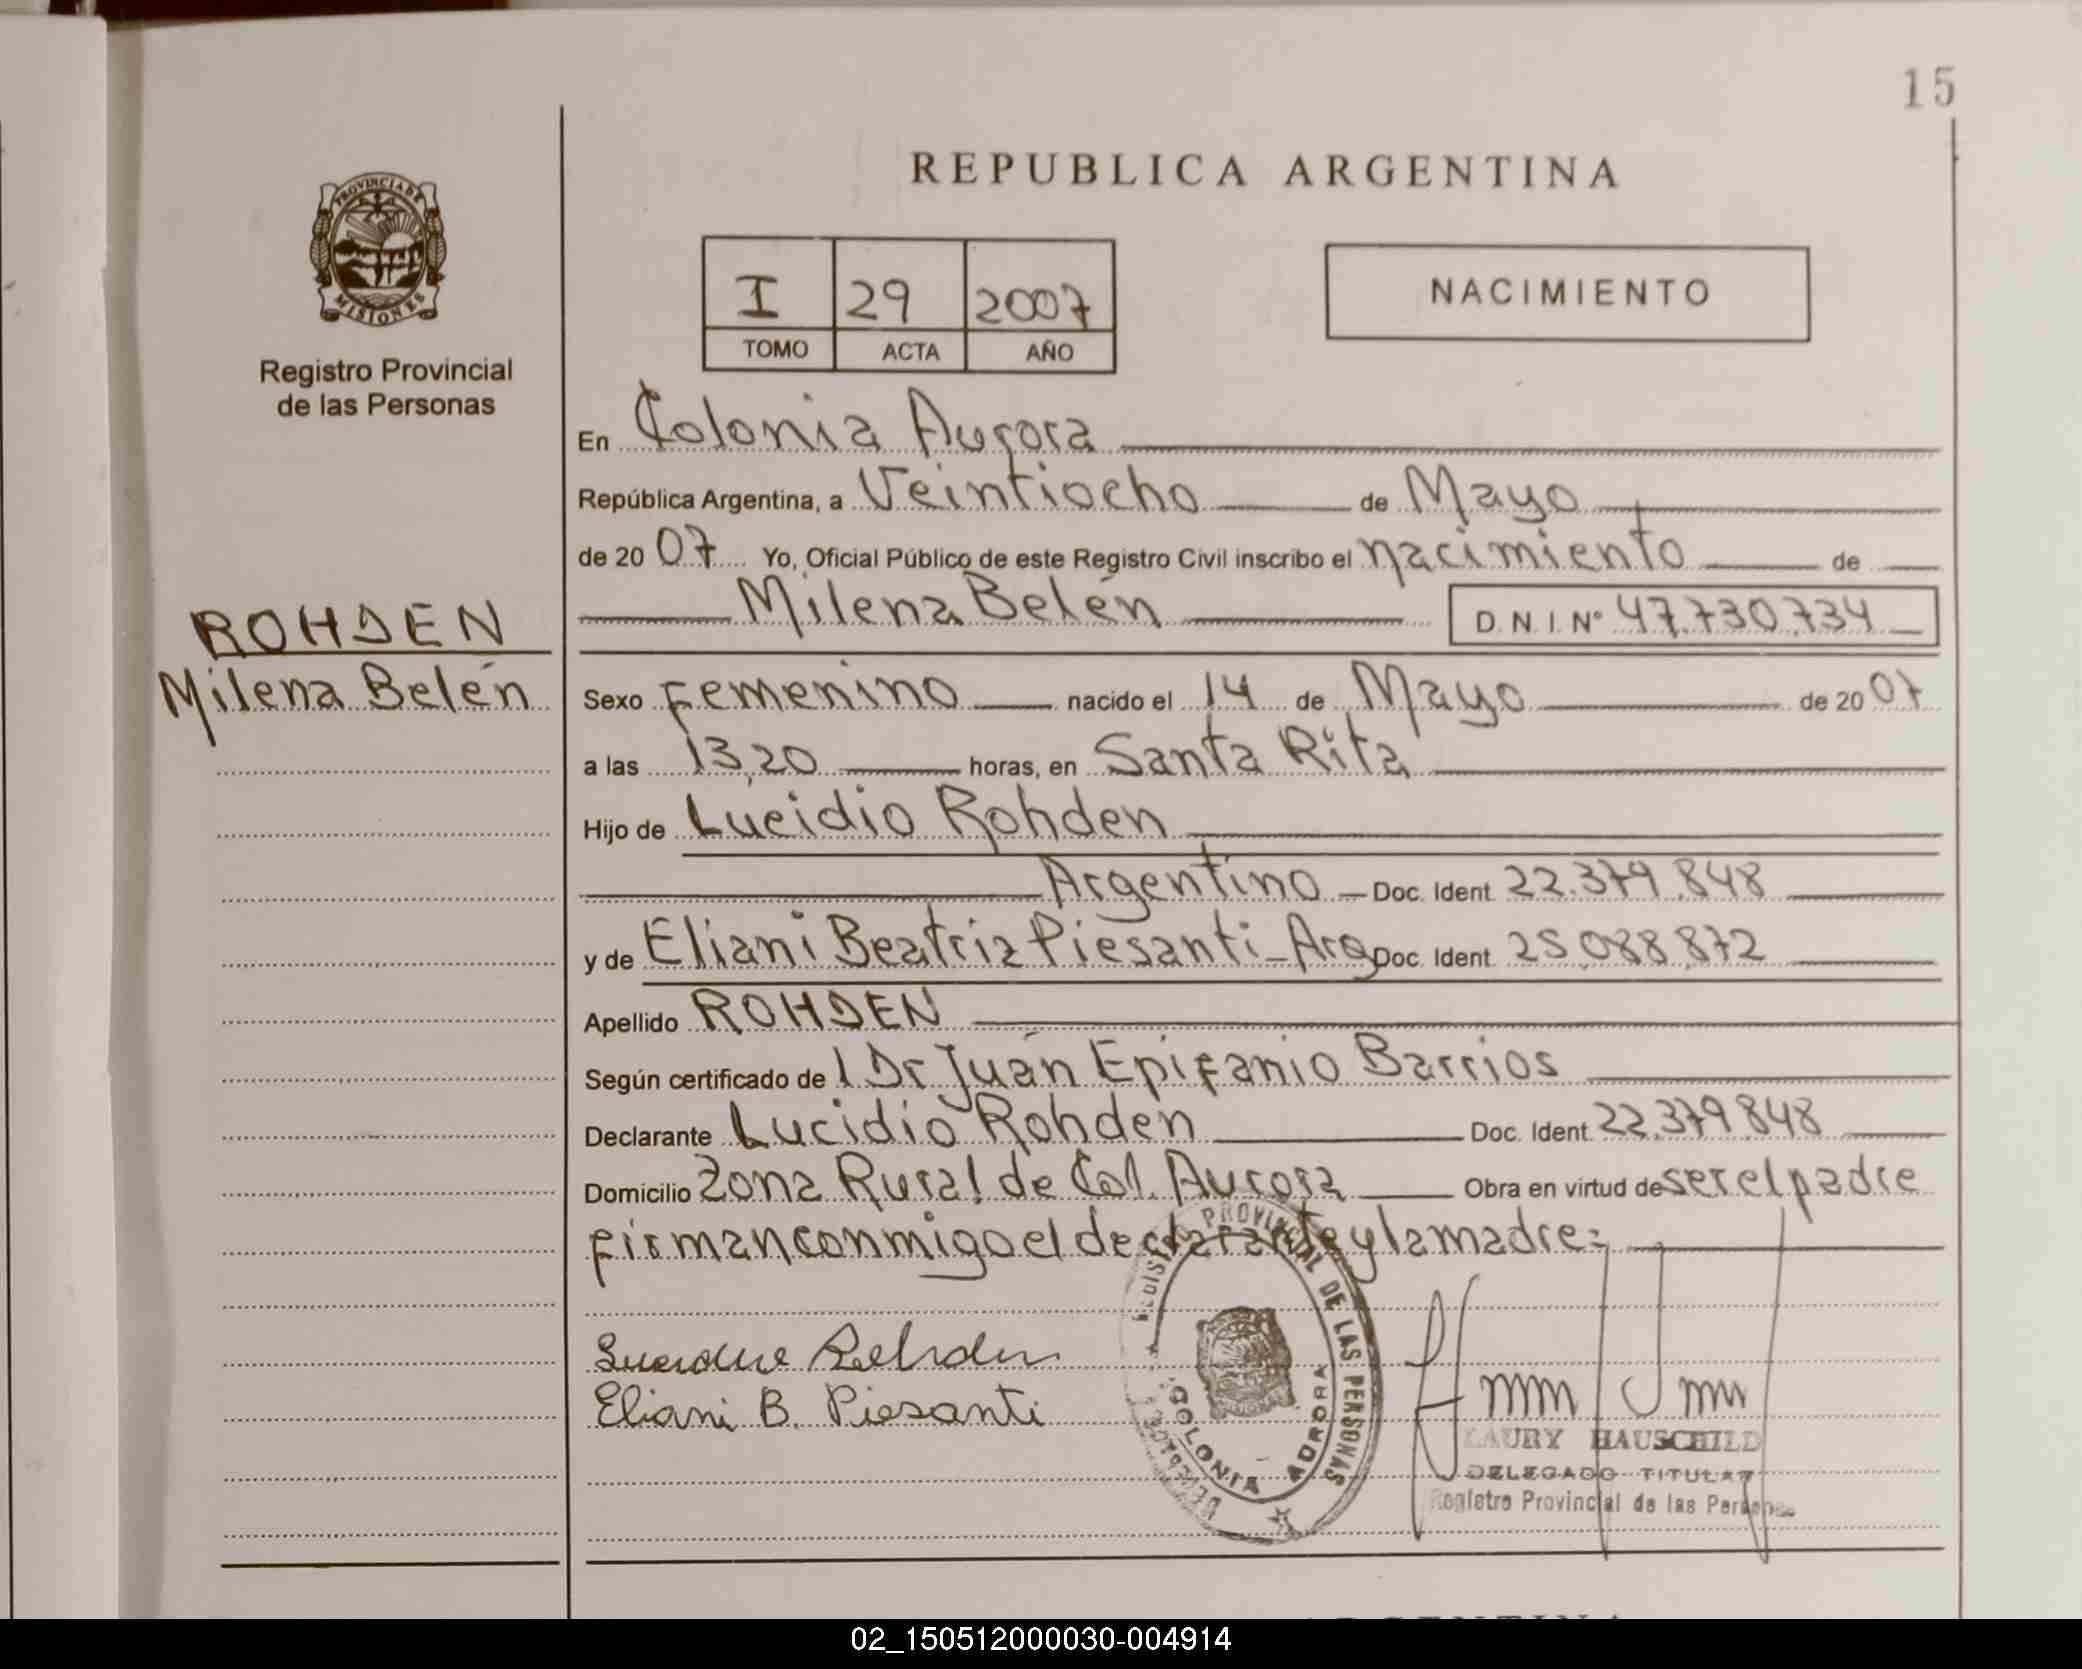 15
PROVINCIA DE
MISIONES
Registro Provincial
de las Personas
REPUBLICA ARGENTINA
I 29 2007
TOMO ACTA AÑO
NACIMIENTO
En Colonia Aurora
República Argentina, a Veintiocho de Mayo
de 20 07 Yo, Oficial Público de este Registro Civil inscribo el nacimiento de
Milena Belén D.N.I. Nº 47.730.734
ROHDEN
Milena Belén
Sexo Femenino nacido el 14 de Mayo de 20 07
a las 13,20 horas, en Santa Rita
Hijo de Lucidio Rohden
Argentino Doc. Ident. 22.379.848
y de Eliani Beatriz Piesanti - Arg Doc. Ident. 25.088.872
Apellido ROHDEN
Según certificado de l Dr Juan Epifanio Barrios
Declarante Lucidio Rohden Doc. Ident. 22.379.848
Domicilio Zona Rural de Col. Aurora Obra en virtud de ser el padre
firman conmigo el declarante y la madre=
REGISTRO PROVINCIAL DE LAS PERSONAS
COLONIA AURORA
Eliani B. Piesanti
LAURY HAUSCHILD
DELEGADO TITULAR
Registro Provincial de las Personas
02_150512000030-004914